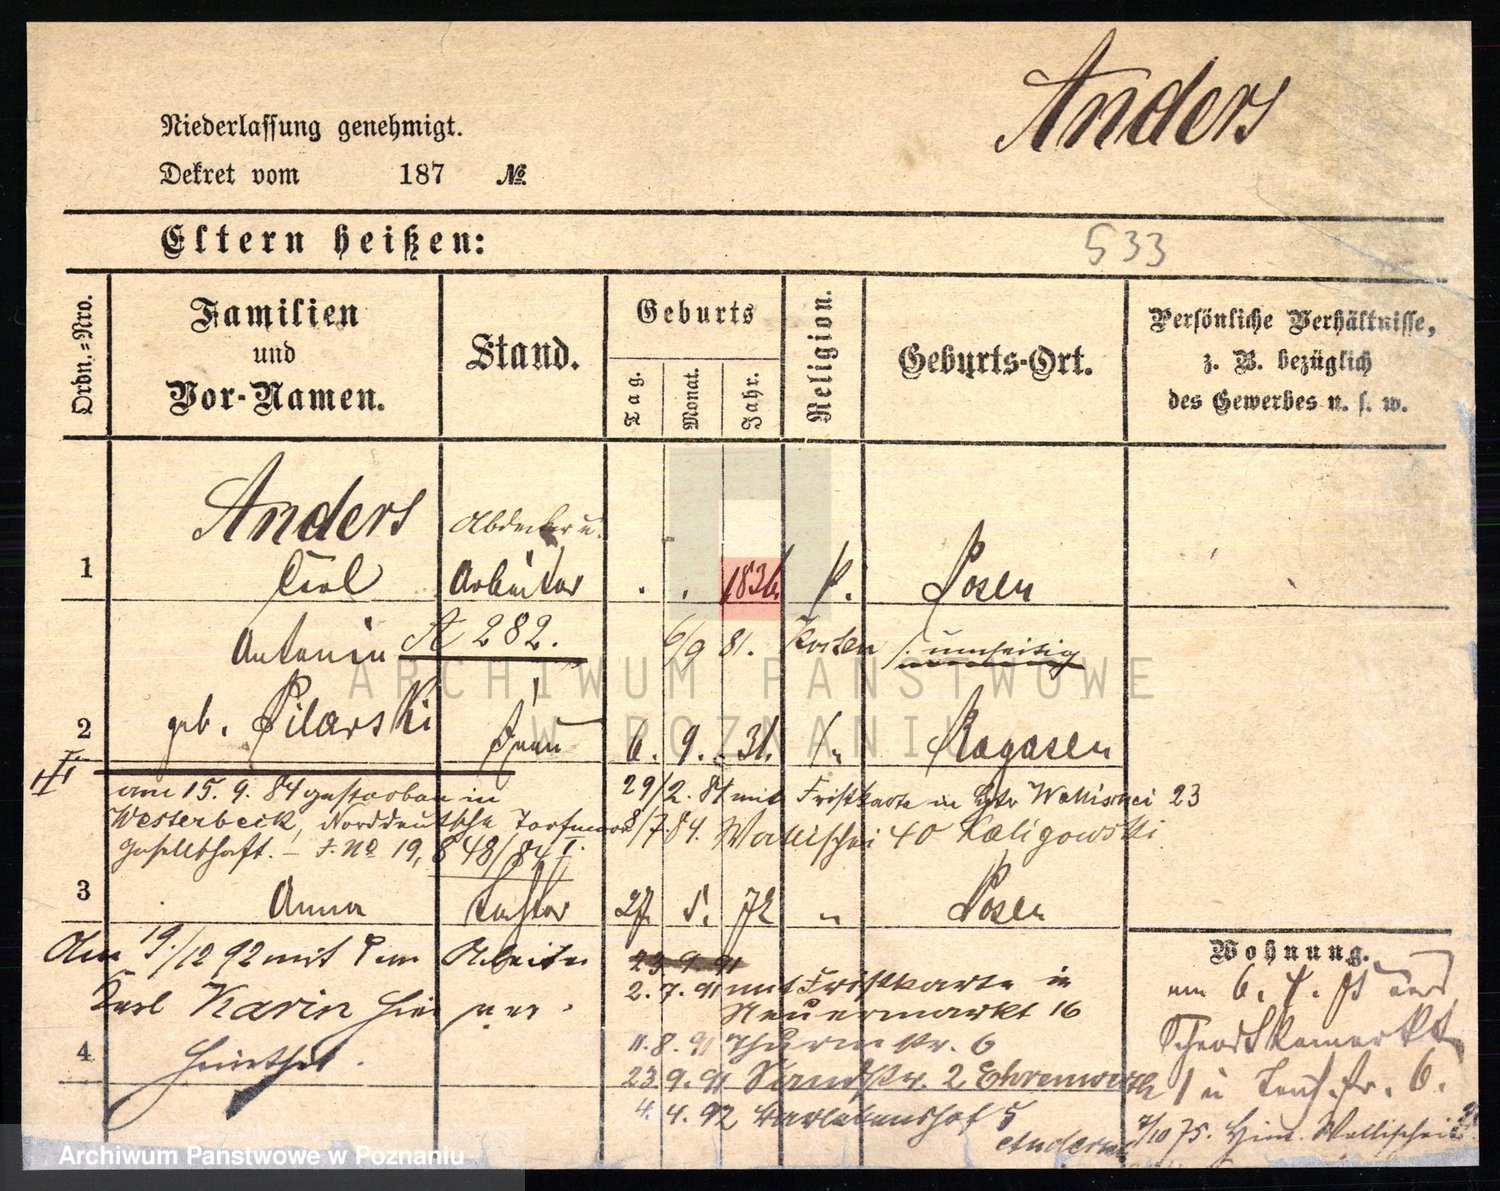 Anders
Niederlassung genehmigt.
Dekret vom 187 №
Eltern heißen:
533
Ordn.=Nro.
Familien
und
Vor-Namen.
Stand.
Geburts
Tag.
Monat.
Jahr.
Religion.
Geburts-Ort.
Persönliche Verhältnisse,
z. B. bezüglich
des Gewerbes u. s. w.
Anders Abdecker u.
1 Carl Arbeiter . . 1836 k. Posen
Antonin A 282. 6/9 81. Kosten
2 geb. Pilarski Frau 6. 9. 31. Rogasen
am 15. 9. 84 gestorben in 29/2. 84 mit Fristkarte in Wallischei 23
Westerbeck, Norddeutsche Torfmoor 8/7. 84. Wallischei 40 Kaligowski
Gesellschaft. – J. No 19, 848/84 I.
3 Anna Tochter 27. 5. 72 " Posen
Am 19./12 92 mit dem Arbeiter 23. 9. 91
Karl Karin hier 2. 7. 91 mit Fristkarte in
Neuermarkt 16
4 11. 8. 91 Thurmstr. 6
23. 9. 91 Sandstr. 2 Ehrenwerth
4. 4. 92 Bartelsenshof 5
Wohnung.
am 6. 7.
6.
7/10 75. Wallischei
ARCHIWUM PAŃSTWOWE
W POZNANIU
Archiwum Państwowe w Poznaniu